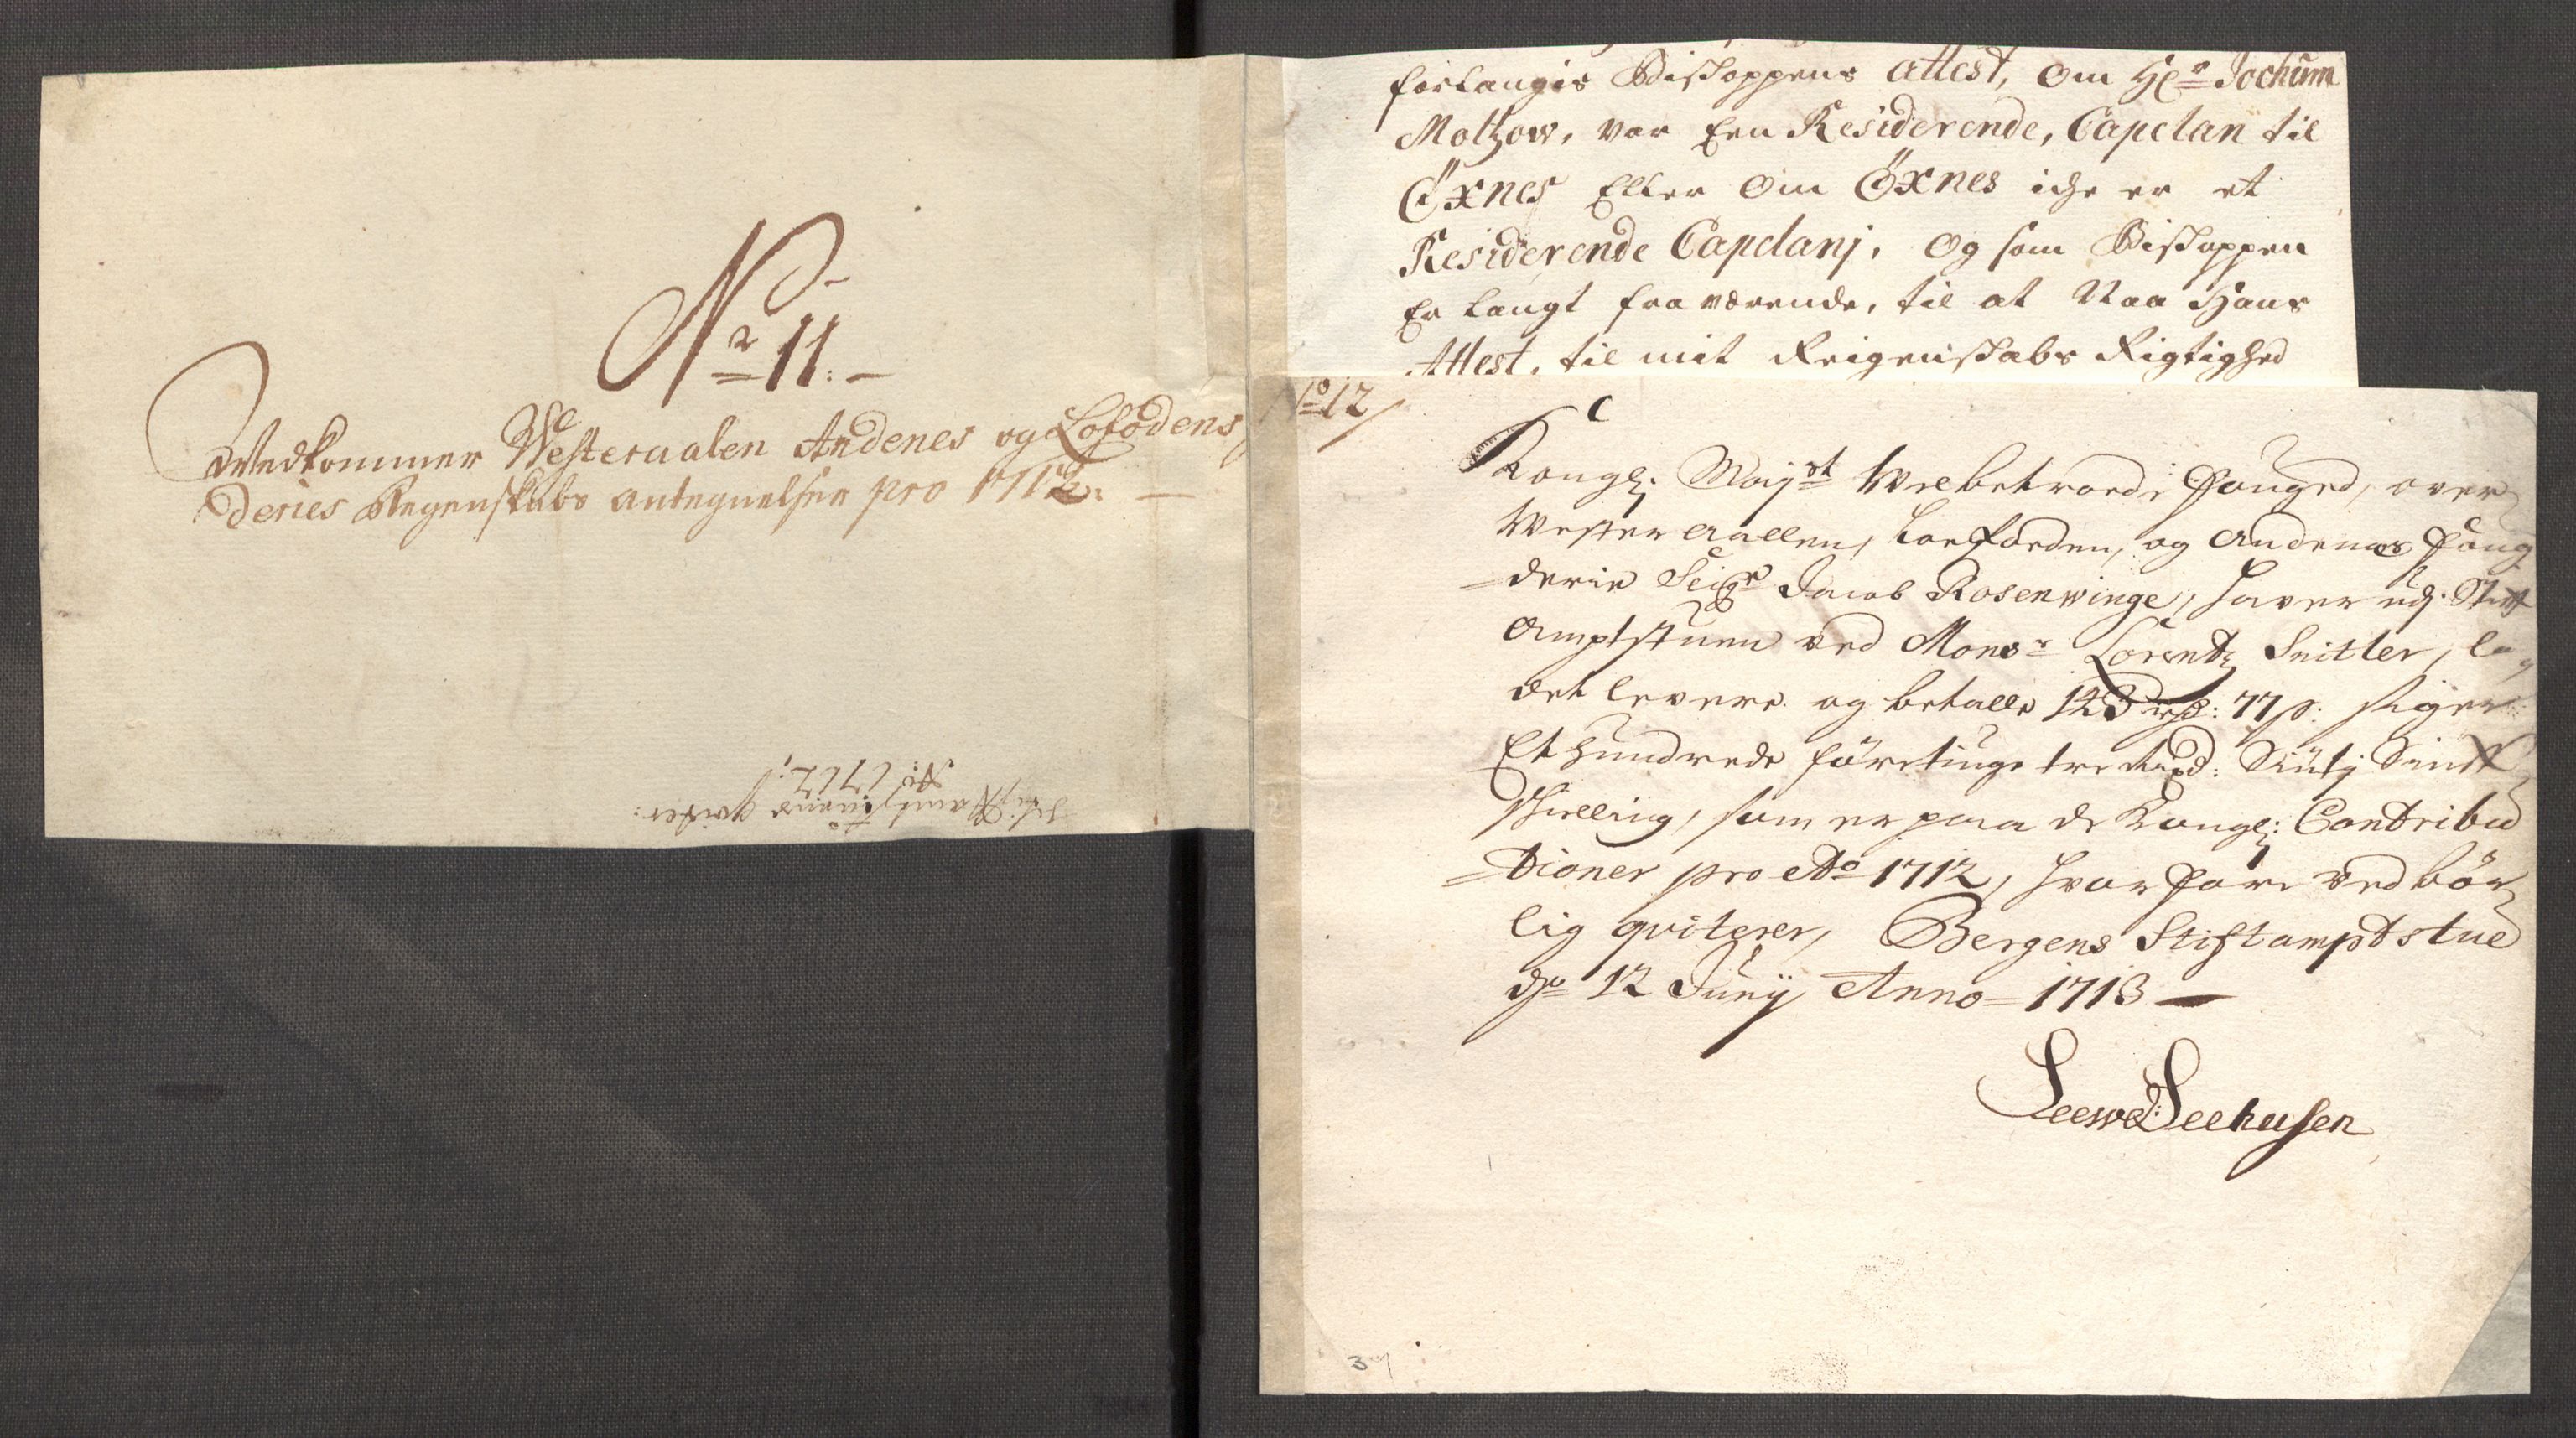 Nr 11.
Wedkommer Westeraalen Andenes og Lofodens
deries Regenskabs antegnelser pro 1712.
Ao: 1712
forlanges Bisshoppens Attest, om Hr Jochum
Moltzow, var een Residerende, Capelan til
Öxnes Eller om Öxnes iche er et
Residerende Capelanj, og som Bisshoppen
er langt fraværende, til at naa Hans
Attest, til mit Reigenskabs Rigtighed
No 12
Kongl: Mayst Welbetroede Fouged, over
Westeraallen, Loefoeden, og Andenæs Foug
=derie Seigr Jacob Rosenwinge, haver udj Stift
Amptstuen ved Monsr Lorentz Seitler, la
det levere og betalle 143 rd: 77 s: siger
Et hundredeföretiuge tre Rixd: Siutj Siuf
skielling, som er paa de Kongl: Contribu
=tioner pro Ao 1712, hvorfore ved bör
lig qviterer, Bergens Stiftamptstue
dn 12 Junij Anno 1713
Seehusen